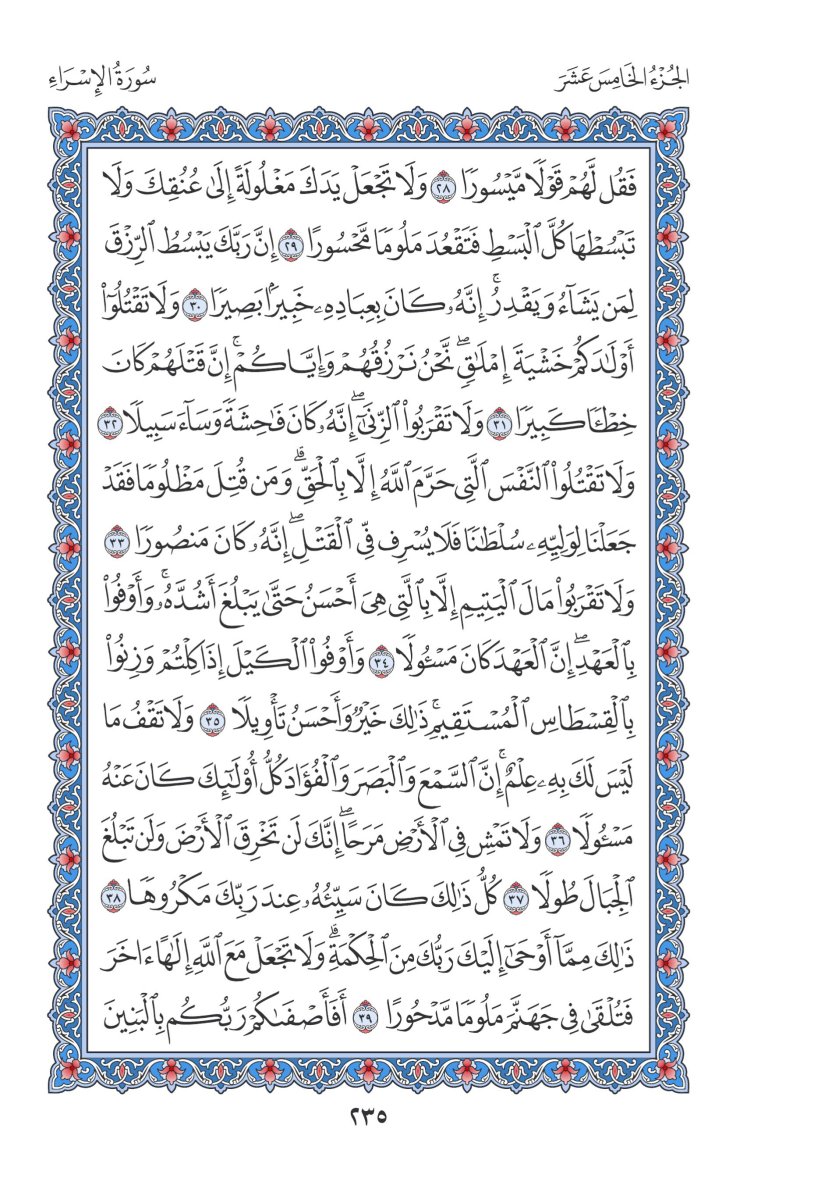 الجُزْءُ الخَامِسَ عَشَرَ
سُورَةُ الإِسْرَاءِ
فَقُل لَّهُمۡ قَوۡلٗا مَّيۡسُورٗا ٢٨ وَلَا تَجۡعَلۡ يَدَكَ مَغۡلُولَةً إِلَىٰ عُنُقِكَ وَلَا
تَبۡسُطۡهَا كُلَّ ٱلۡبَسۡطِ فَتَقۡعُدَ مَلُومٗا مَّحۡسُورًا ٢٩ إِنَّ رَبَّكَ يَبۡسُطُ ٱلرِّزۡقَ
لِمَن يَشَآءُ وَيَقۡدِرُۚ إِنَّهُۥ كَانَ بِعِبَادِهِۦ خَبِيرَۢا بَصِيرٗا ٣٠ وَلَا تَقۡتُلُوٓاْ
أَوۡلَٰدَكُمۡ خَشۡيَةَ إِمۡلَٰقٖۖ نَّحۡنُ نَرۡزُقُهُمۡ وَإِيَّاكُمۡۚ إِنَّ قَتۡلَهُمۡ كَانَ
خِطۡـٔٗا كَبِيرٗا ٣١ وَلَا تَقۡرَبُواْ ٱلزِّنَىٰٓۖ إِنَّهُۥ كَانَ فَٰحِشَةٗ وَسَآءَ سَبِيلٗا ٣٢
وَلَا تَقۡتُلُواْ ٱلنَّفۡسَ ٱلَّتِي حَرَّمَ ٱللَّهُ إِلَّا بِٱلۡحَقِّۗ وَمَن قُتِلَ مَظۡلُومٗا فَقَدۡ
جَعَلۡنَا لِوَلِيِّهِۦ سُلۡطَٰنٗا فَلَا يُسۡرِف فِّي ٱلۡقَتۡلِۖ إِنَّهُۥ كَانَ مَنصُورٗا ٣٣
وَلَا تَقۡرَبُواْ مَالَ ٱلۡيَتِيمِ إِلَّا بِٱلَّتِي هِيَ أَحۡسَنُ حَتَّىٰ يَبۡلُغَ أَشُدَّهُۥۚ وَأَوۡفُواْ
بِٱلۡعَهۡدِۖ إِنَّ ٱلۡعَهۡدَ كَانَ مَسۡـُٔولٗا ٣٤ وَأَوۡفُواْ ٱلۡكَيۡلَ إِذَا كِلۡتُمۡ وَزِنُواْ
بِٱلۡقِسۡطَاسِ ٱلۡمُسۡتَقِيمِۚ ذَٰلِكَ خَيۡرٞ وَأَحۡسَنُ تَأۡوِيلٗا ٣٥ وَلَا تَقۡفُ مَا
لَيۡسَ لَكَ بِهِۦ عِلۡمٌۚ إِنَّ ٱلسَّمۡعَ وَٱلۡبَصَرَ وَٱلۡفُؤَادَ كُلُّ أُوْلَٰٓئِكَ كَانَ عَنۡهُ
مَسۡـُٔولٗا ٣٦ وَلَا تَمۡشِ فِي ٱلۡأَرۡضِ مَرَحًاۖ إِنَّكَ لَن تَخۡرِقَ ٱلۡأَرۡضَ وَلَن تَبۡلُغَ
ٱلۡجِبَالَ طُولٗا ٣٧ كُلُّ ذَٰلِكَ كَانَ سَيِّئُهُۥ عِندَ رَبِّكَ مَكۡرُوهٗا ٣٨
ذَٰلِكَ مِمَّآ أَوۡحَىٰٓ إِلَيۡكَ رَبُّكَ مِنَ ٱلۡحِكۡمَةِۗ وَلَا تَجۡعَلۡ مَعَ ٱللَّهِ إِلَٰهًا ءَاخَرَ
فَتُلۡقَىٰ فِي جَهَنَّمَ مَلُومٗا مَّدۡحُورًا ٣٩ أَفَأَصۡفَىٰكُمۡ رَبُّكُم بِٱلۡبَنِينَ
٢٣٥